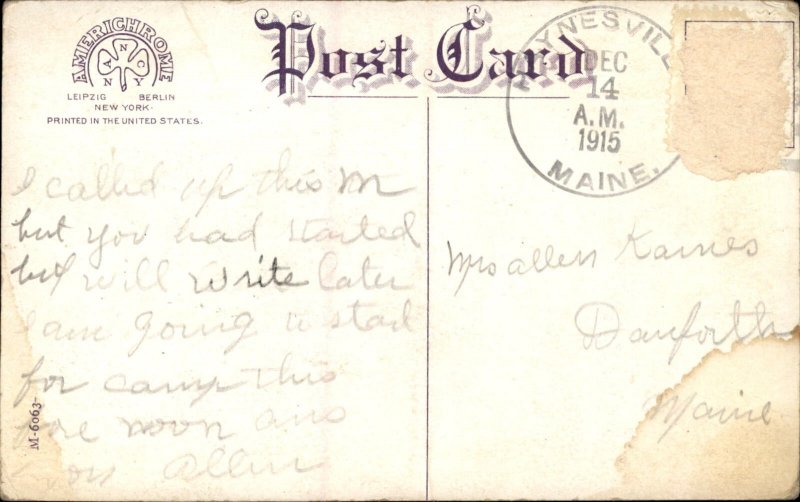 AMERICHROME
NANCY
LEIPZIG BERLIN
NEW YORK.
PRINTED IN THE UNITED STATES.
Post Card
YNESVILL
DEC
14
A.M.
1915
MAINE.
I called up this M
but you had started
but will write later
I am going to start
for camp this
fore noon ans
Allen
M-6063-
Mrs allen Karnes
Danforth
Maine